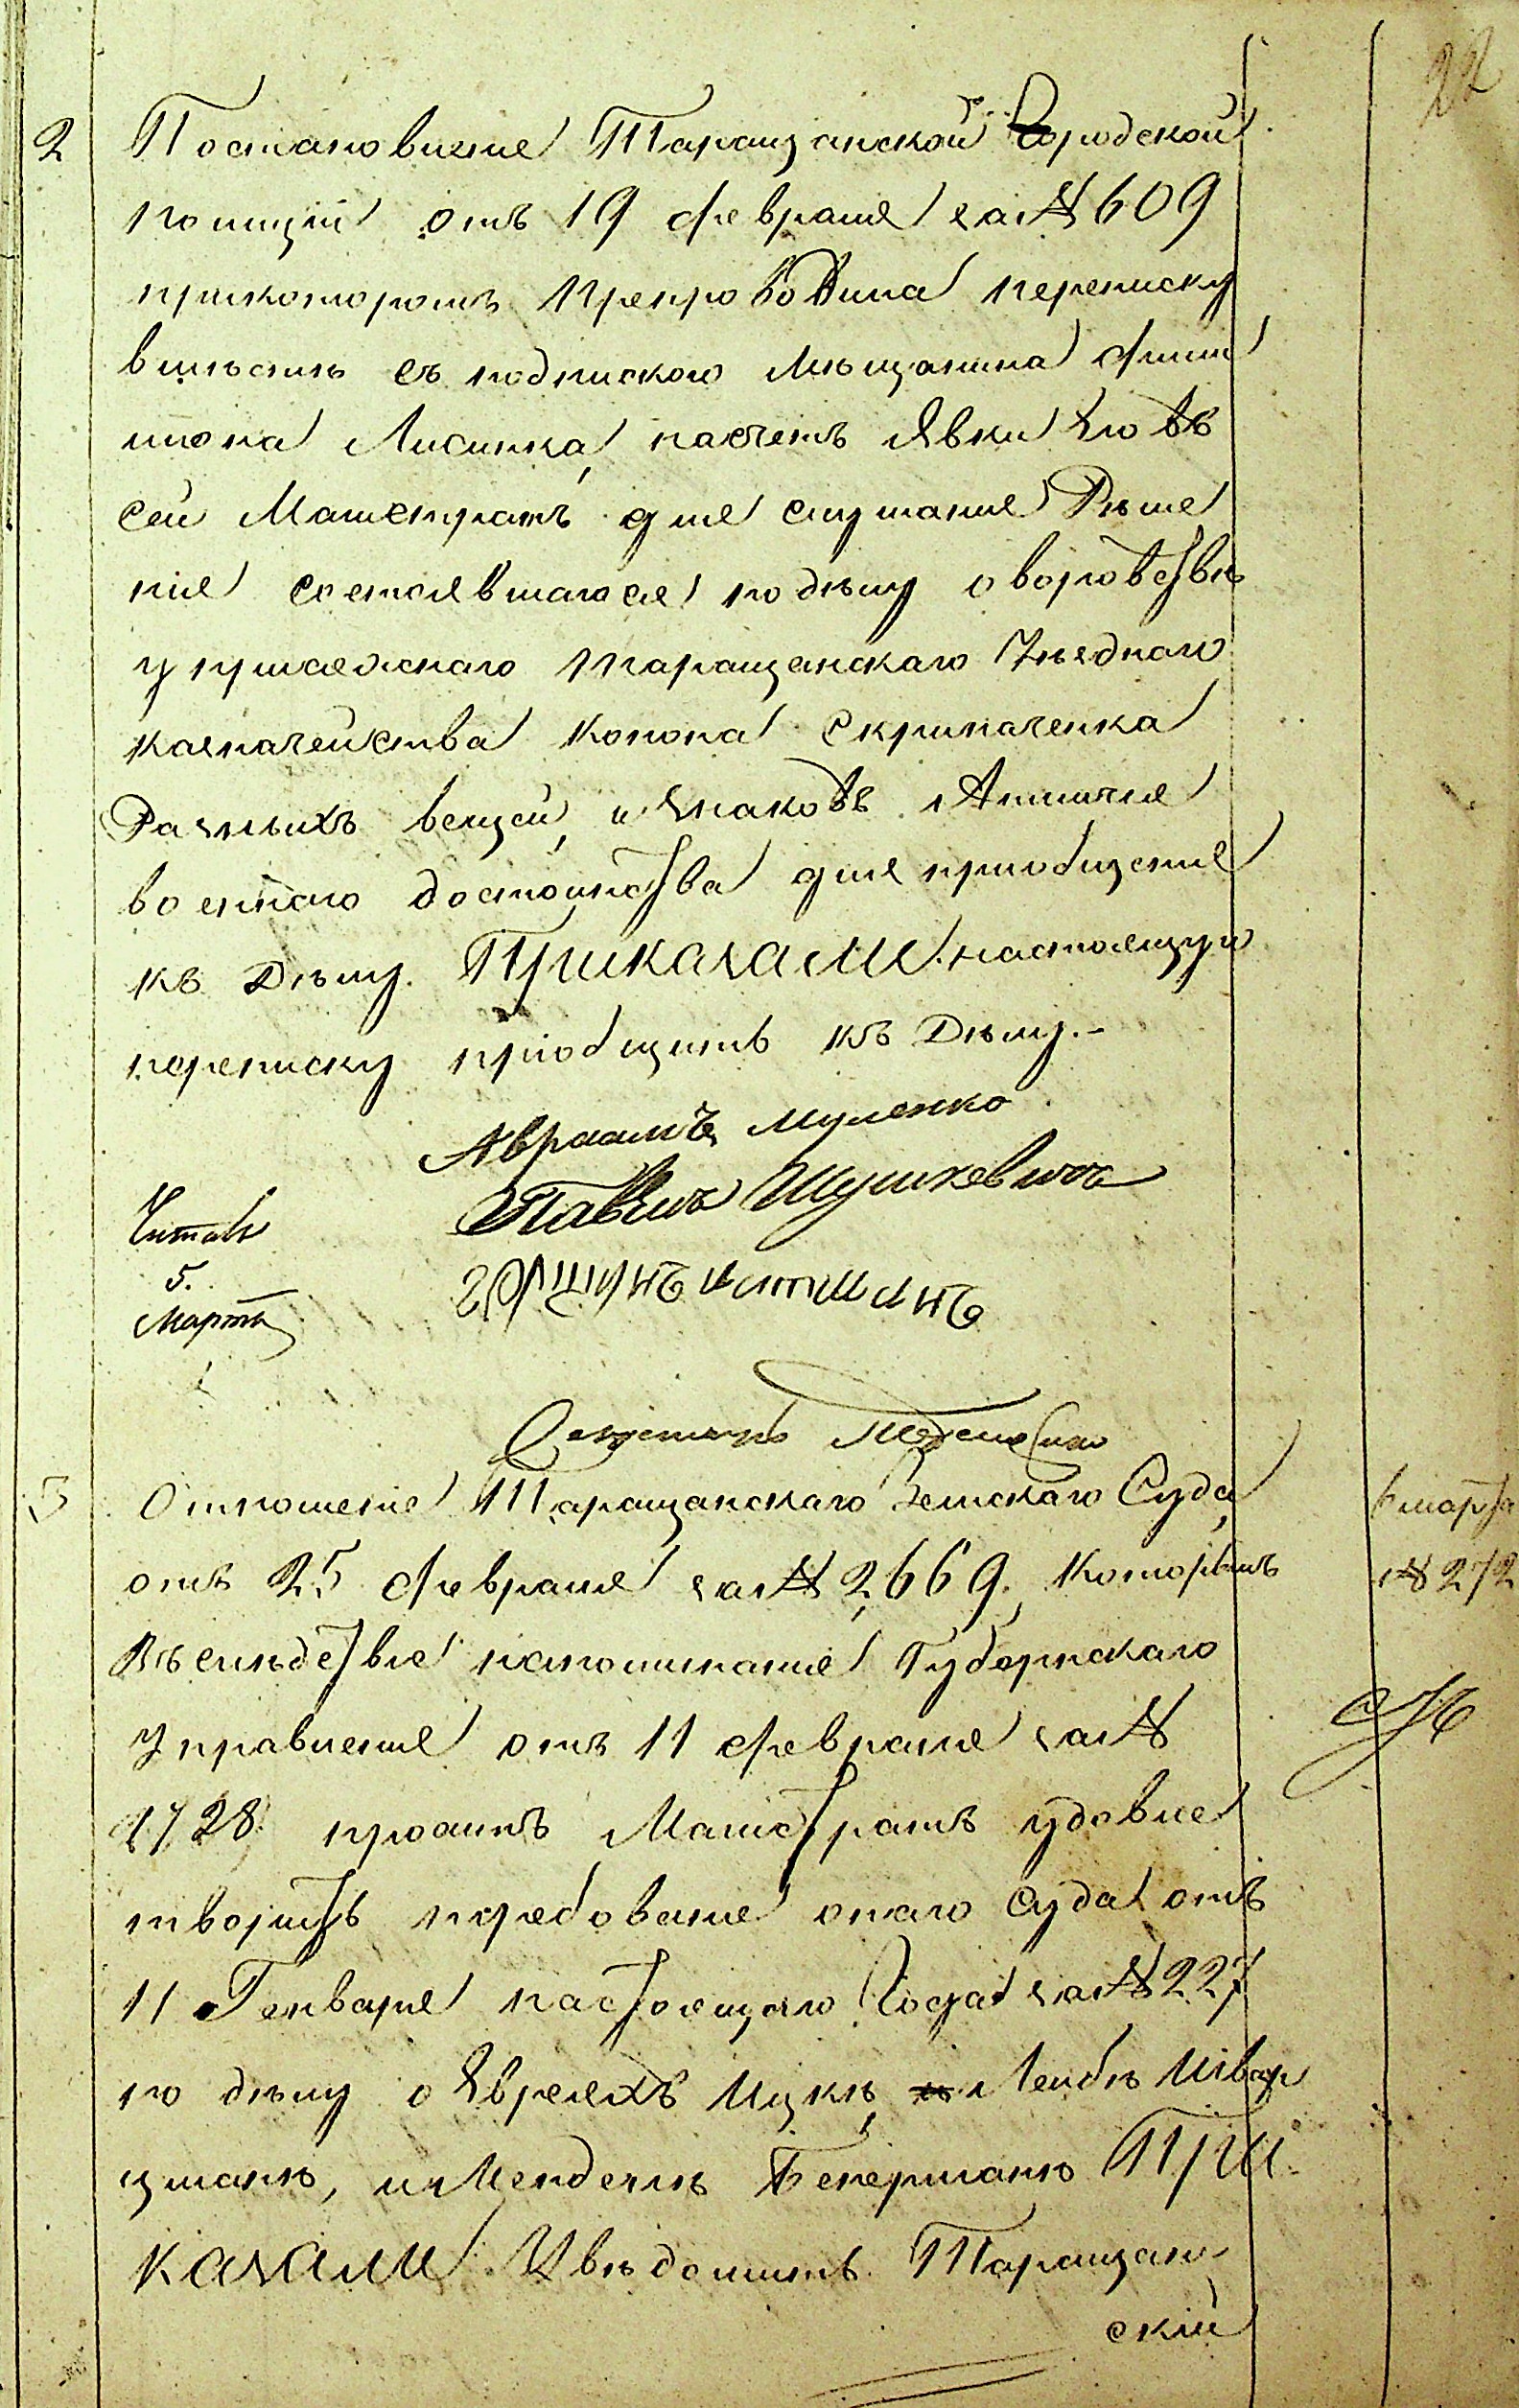 22
2 Постановление Таращанской Городской
полиции отъ 19 февраля за № 609
прикоторомъ препроводила переписку
вместе съ подпискою мещанина Фили
мона Лисинка, насчетъ явки его въ
сей Магистратъ для слушания Реше
нія состоявшагося поделу оворовстве
у присяжнаго Таращанскаго Уезднаго
казначейства Конона Скрипаченка
Разныхъ вещей, и знаковъ Аннинскаго
военнаго достоинства для приобщения
къ Делу. Приказали настоящую
переписку пріобщить къ Делу.-
Авраамъ
Павелъ Шушкевичъ
Читалъ
5.
Марта
3 Отношеніе Таращанскаго Земскаго Суда
отъ 25 февраля за № 2669, которымъ
Въследствіе напоминания Губернскаго
Управления отъ 11 февраля за №
1728 проситъ Магистратъ удовле
творить требование онаго Суда отъ
11 Генваря настоящаго Года за № 227
по делу о Евреяхъ Ицке, и Лейбе Швар
цмане, и Менделе Бекермане При
казали Уведомить Таращан
скій
6 марта
№ 272